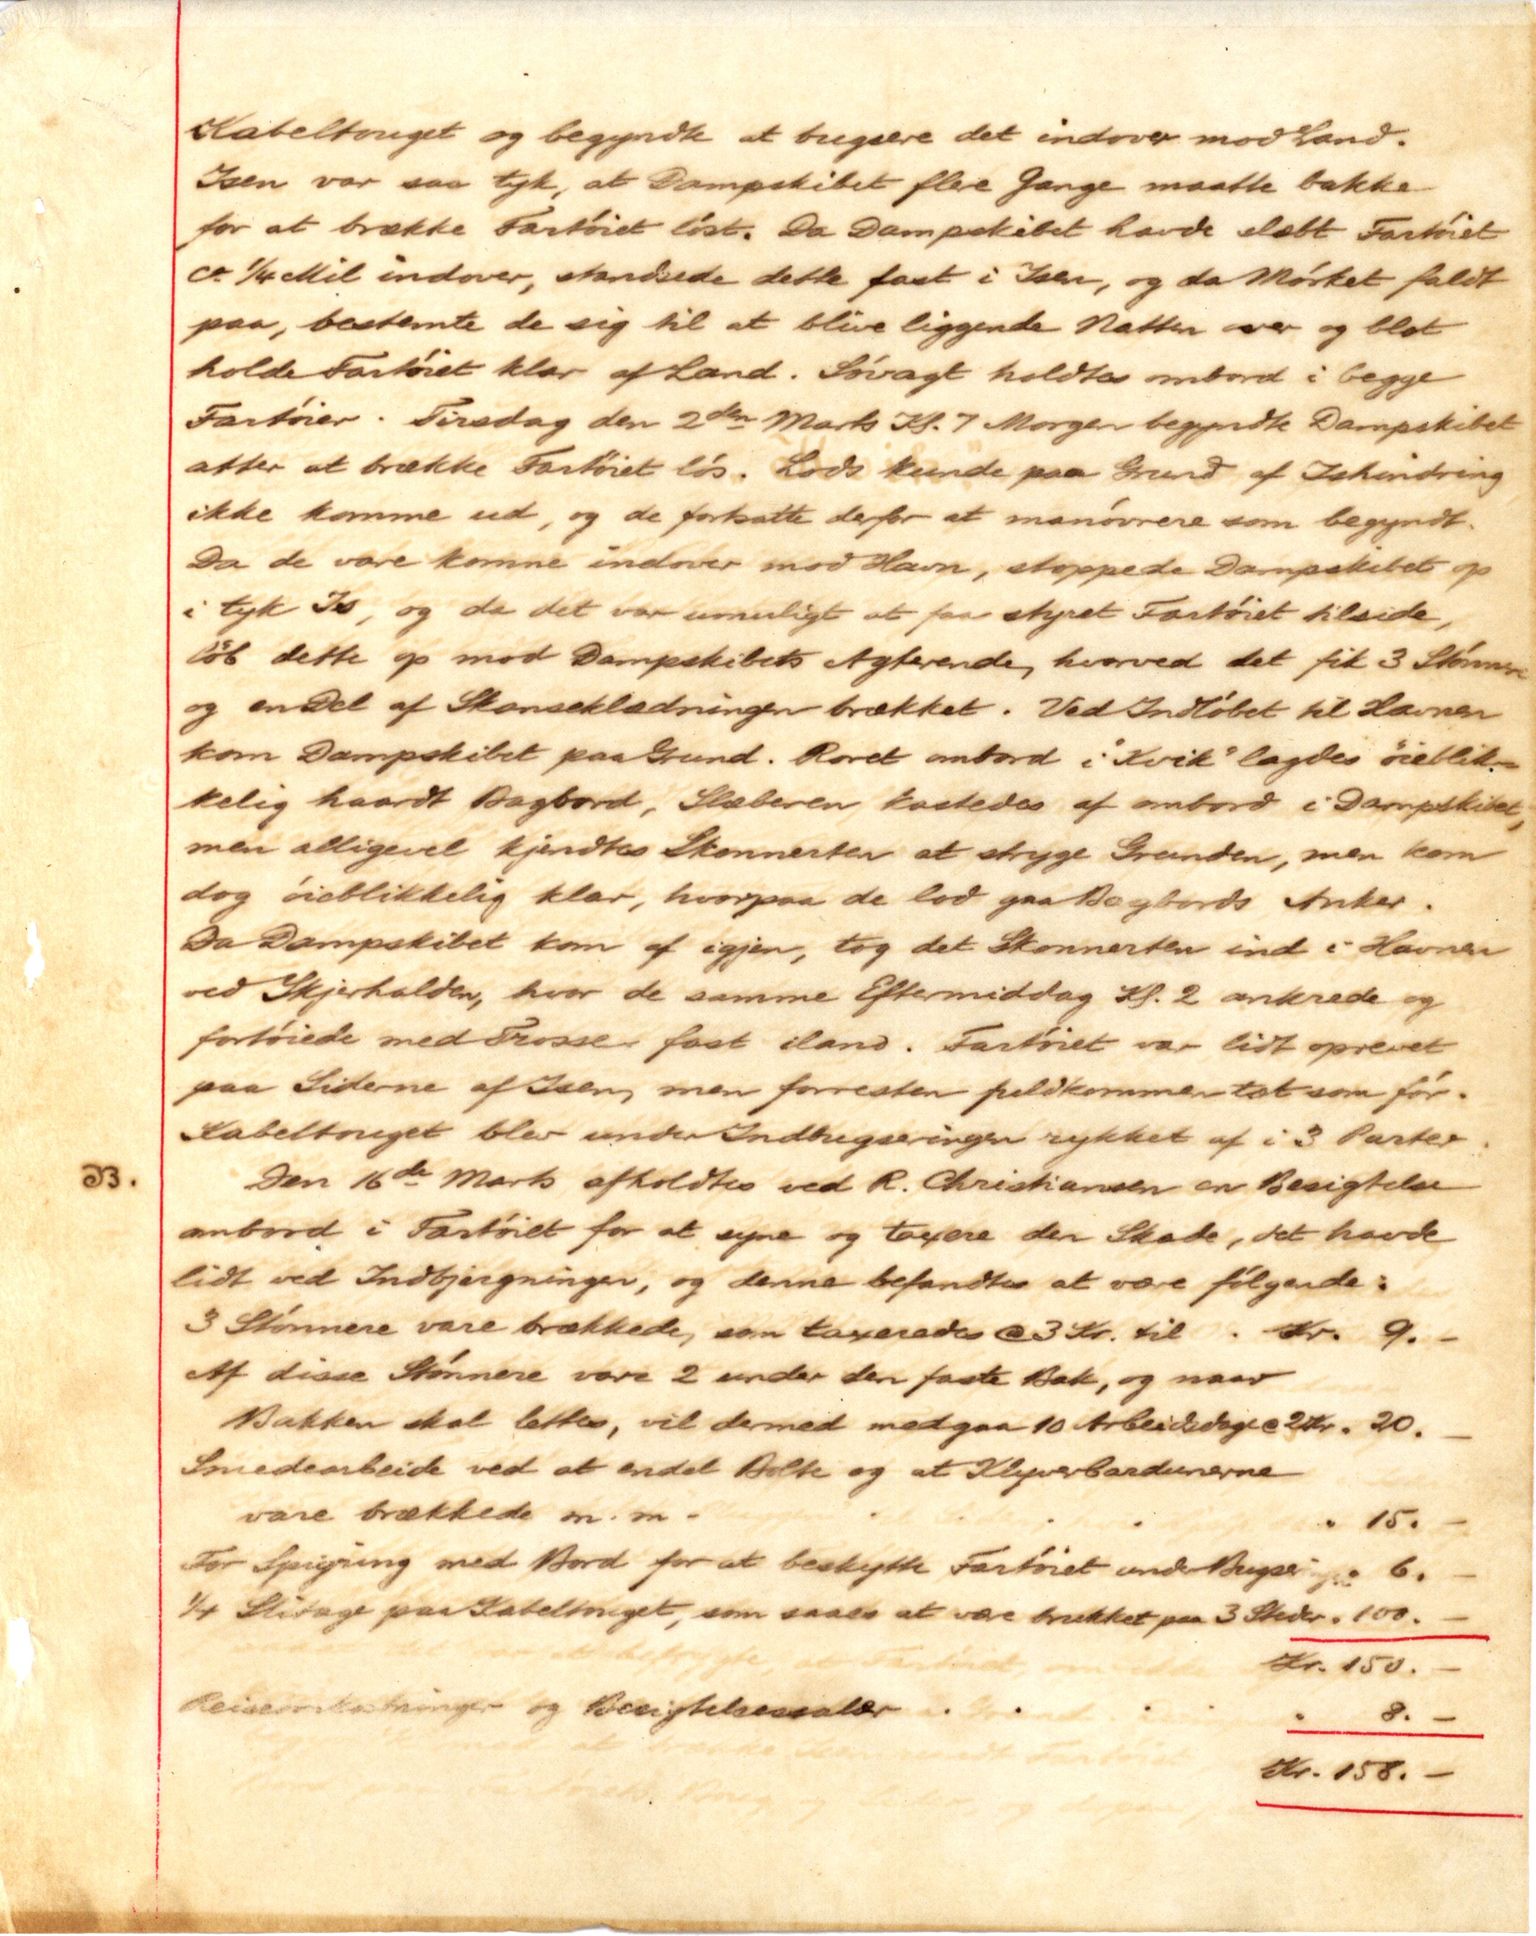 Kabeltouget og begyndte at bugsere det indover mod Land.
Isen var saa tyk, at Dampskibet flere Gange maatte bakke
for at brække Fartöiet löst. Da Dampskibet havde slæbt Fartöiet
ca 1/4 Mil indover, standsede dette fast i Isen, og da Mörket faldt
paa, bestemte de sig til at blive liggende Natten over og blot
holde Fartöiet klar af Land. Sövagt holdtes ombord i begge
Fartöier. Tirsdag den 2den Marts Kl. 7 Morgen begyndte Dampskibet
atter at brække Fartöiet lös. Lods kunde paa Grund af Ishindring
ikke komme ud, og de fortsatte derfor at manövrere som begyndt.
Da de vare komne indover mod Havn, stoppede Dampskibet op
i tyk Is, og da det var umuligt at faa styret Fartöiet tilside,
löb dette op mod Dampskibets Agterende, hvorved det fik 3 Stönnere
og en Del af Skanseklædningen brækket. Ved Indlöbet til Havnen
kom Dampskibet paa Grund. Roret ombord i "Kvik" lagdes öieblik-
kelig haardt Bagbord, Slæberen kastedes af ombord i Dampskibet,
men alligevel kjendtes Skonnerten at stryge Grunden, men kom
dog öieblikkelig klar, hvorpaa de lod gaa Bagbords Anker.
Da Dampskibet kom af igjen, tog det Skonnerten ind i Havnen
ved Skjærhalden, hvor de samme Eftermiddag Kl. 2 ankrede og
fortöiede med Trosser fast iland. Fartöiet var lidt oprevet
paa Siderne af Isen, men forresten fuldkommen tæt som för.
Kabeltouget blev under Indbugseringen rykket af i 3 Parter.
B. Den 16de Marts afholdtes ved R. Christiansen en Besigtelse
ombord i Fartöiet for at syne og taxere den Skade, det havde
lidt ved Indbjergningen, og denne befandtes at være fölgende:
3 Stönnere vare brækkede, som taxeredes @ 3 Kr. til . Kr. 9. -
Af disse Stönnere vare 2 under den faste Bak, og naar
Bakken skal lettes, vil dermed medgaa 10 Arbeidsdage @ 2 Kr. 20. -
Smedearbeide ved at endel Bolte og at Klyverbardunerne
vare brækkede m. m. . . . . " 15. -
For Spigring med Bord for at beskytte Fartöiet under " 6. -
1/4 Slitage paa Kabeltouget, som saaes at være brukket paa 3 Steder " 100. -
Kr. 150. -
Reiseomkostninger og Besigtelsessalær . . . . " 8. -
Kr. 158. -